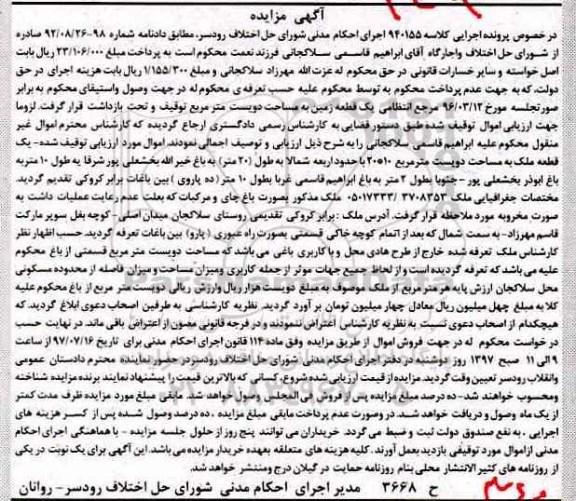 آگهی مزایده
در خصوص پرونده اجرایی کلاسه ۹۴۰۱۵۵ اجرای احکام مدنی شورای حل اختلاف رودسر، مطابق دادنامه شماره ۹۸-۹۲/۰۸/۲۶ صادره
از شورای حل اختلاف واجارگاه آقای ابراهیم قاسمی سلاکجانی فرزند نعمت محکوم است به پرداخت مبلغ ۲۳/۱۰۶/۰۰۰ ریال بابت
اصل خواسته و سایر خسارات قانونی در حق محکوم له عزت الله مهرزاد سلاکجانی و مبلغ ۱/۱۵۵/۳۰۰ ریال بابت هزینه اجرای در حق
دولت، که به جهت عدم پرداخت محکوم به توسط محکوم علیه حسب تعرفه ی محکوم له در جهت وصول واستیفای محکوم به برابر
صورتجلسه مورخ ۹۶/۰۳/۱۲ مرجع انتظامی یک قطعه زمین به مساحت دویست متر مربع توقیف و تحت بازداشت قرار گرفت. لزوما
جهت ارزیابی اموال توقیف شده طبق دستور قضایی به کارشناس رسمی دادگستری ارجاع گردیده که کارشناس محترم اموال غیر
منقول محکوم علیه ابراهیم قاسمی سلاکجانی را به شرح ذیل ارزیابی و توصیف اجمالی نمودند. اموال مورد ارزیابی توقیف شده- یک
قطعه ملک به مساحت دویست مترمربع ۱۰*۲۰ با حدود اربعه شمالا به طول (۲۰ متر) به باغ خیر الله بخشعلی پور شرقا به طول ۱۰ متر به
باغ ابوذر بخشعلی پور -جنوبا بطول ۲ متر به باغ ابراهیم قاسمی غربا بطول ۱۰ متر (ده پاروی) بین باغات برابر کروکی تقدیم گردید.
مختصات جغرافیایی ملک ۳۷۰۸۳۵۳ /۰۵۰۱۷۳۳۳ ملک مذکور بصورت باغ چای و مرکبات که بعلت عدم رعایت عملیات داشت به
صورت مخروبه مورد ملاحظه قرار گرفت. آدرس ملک : برابر کروکی تقدیمی روستای سلاکجان میدان اصلی- کوچه بغل سوپر مارکت
قاسم مهرزاد- به سمت شمال که بعد از اتمام کوچه خاکی قسمتی بصورت راه عبوری (پارو) بین باغات تعرفه گردید. حسب اظهار نظر
کارشناس ملک تعرفه شده خارج از طرح هادی محل و با کاربری باغی می باشد که مساحت دویست متر مربع قسمتی از باغ محکوم
علیه می باشد که تعرفه گردیده است و از لحاظ جمیع جهات موثر از جمله کاربری ومیزان مساحت و میزان فاصله از محدوده مسکونی
محل سلاکجان ارزش پایه هر متر مربع از ملک موصوف به مبلغ دویست هزار ریال وارزش ریالی دویست متر مربع از باغ محکوم علیه
کلا به مبلغ چهل میلیون ریال معادل چهار میلیون تومان بر آورد گردید. نظریه کارشناسی به طرفین اصحاب دعوی ابلاغ گردید که
هیچکدام از اصحاب دعوی نسبت به نظریه کارشناس اعتراض ننمودند و در فرجه قانونی مصون از اعتراض باقی ماند. در نهایت حسب
درخواست محکوم له در جهت فروش اموال از طریق مزایده وفق ماده ۱۱۴ قانون اجرای احکام مدنی برای تاریخ ۹۷/۰۷/۱۶ از ساعت
۹ الی ۱۱ صبح ۱۳۹۷ روز دوشنبه در دفتر اجرای احکام مدنی شورای حل اختلاف رودسر در حضور نماینده محترم دادستان عمومی
وانقلاب رودسر تعیین وقت گردید. مزایده از قیمت ارزیابی شده شروع، کسانی که بالاترین قیمت را پیشنهاد نمایند برنده مزایده شناخته
ومحسوب خواهند شد- ده درصد مبلغ مزایده پس از فروش فی المجلس وصول خواهد شد. مابقی مبلغ مورد مزایده ظرف مدت کمتر
از یک ماه وصول و دریافت خواهد شد. در وصورت عدم پرداخت مابقی مبلغ مزایده، ده درصد وصول شده پس از کسر هزینه های
اجرایی، به نفع صندوق دولت ثبت و ضبط می گردد. خریداران می توانند پنج روز از حلول جلسه مزایده - با هماهنگی اجرای احکام
مدنی ازاموال مورد توقیفی بازدید بعمل آورند. کلیه هزینه های متعلقه بعهده خریدار مزایده می باشد. این آگهی برای یک نوبت در یکی
از روزنامه های کثیر الانتشار محلی بنام روزنامه حمایت در گیلان درج ومنتشر خواهد شد.
ح ۳۶۶۸ مدیر اجرای احکام مدنی شورای حل اختلاف رودسر- روانان